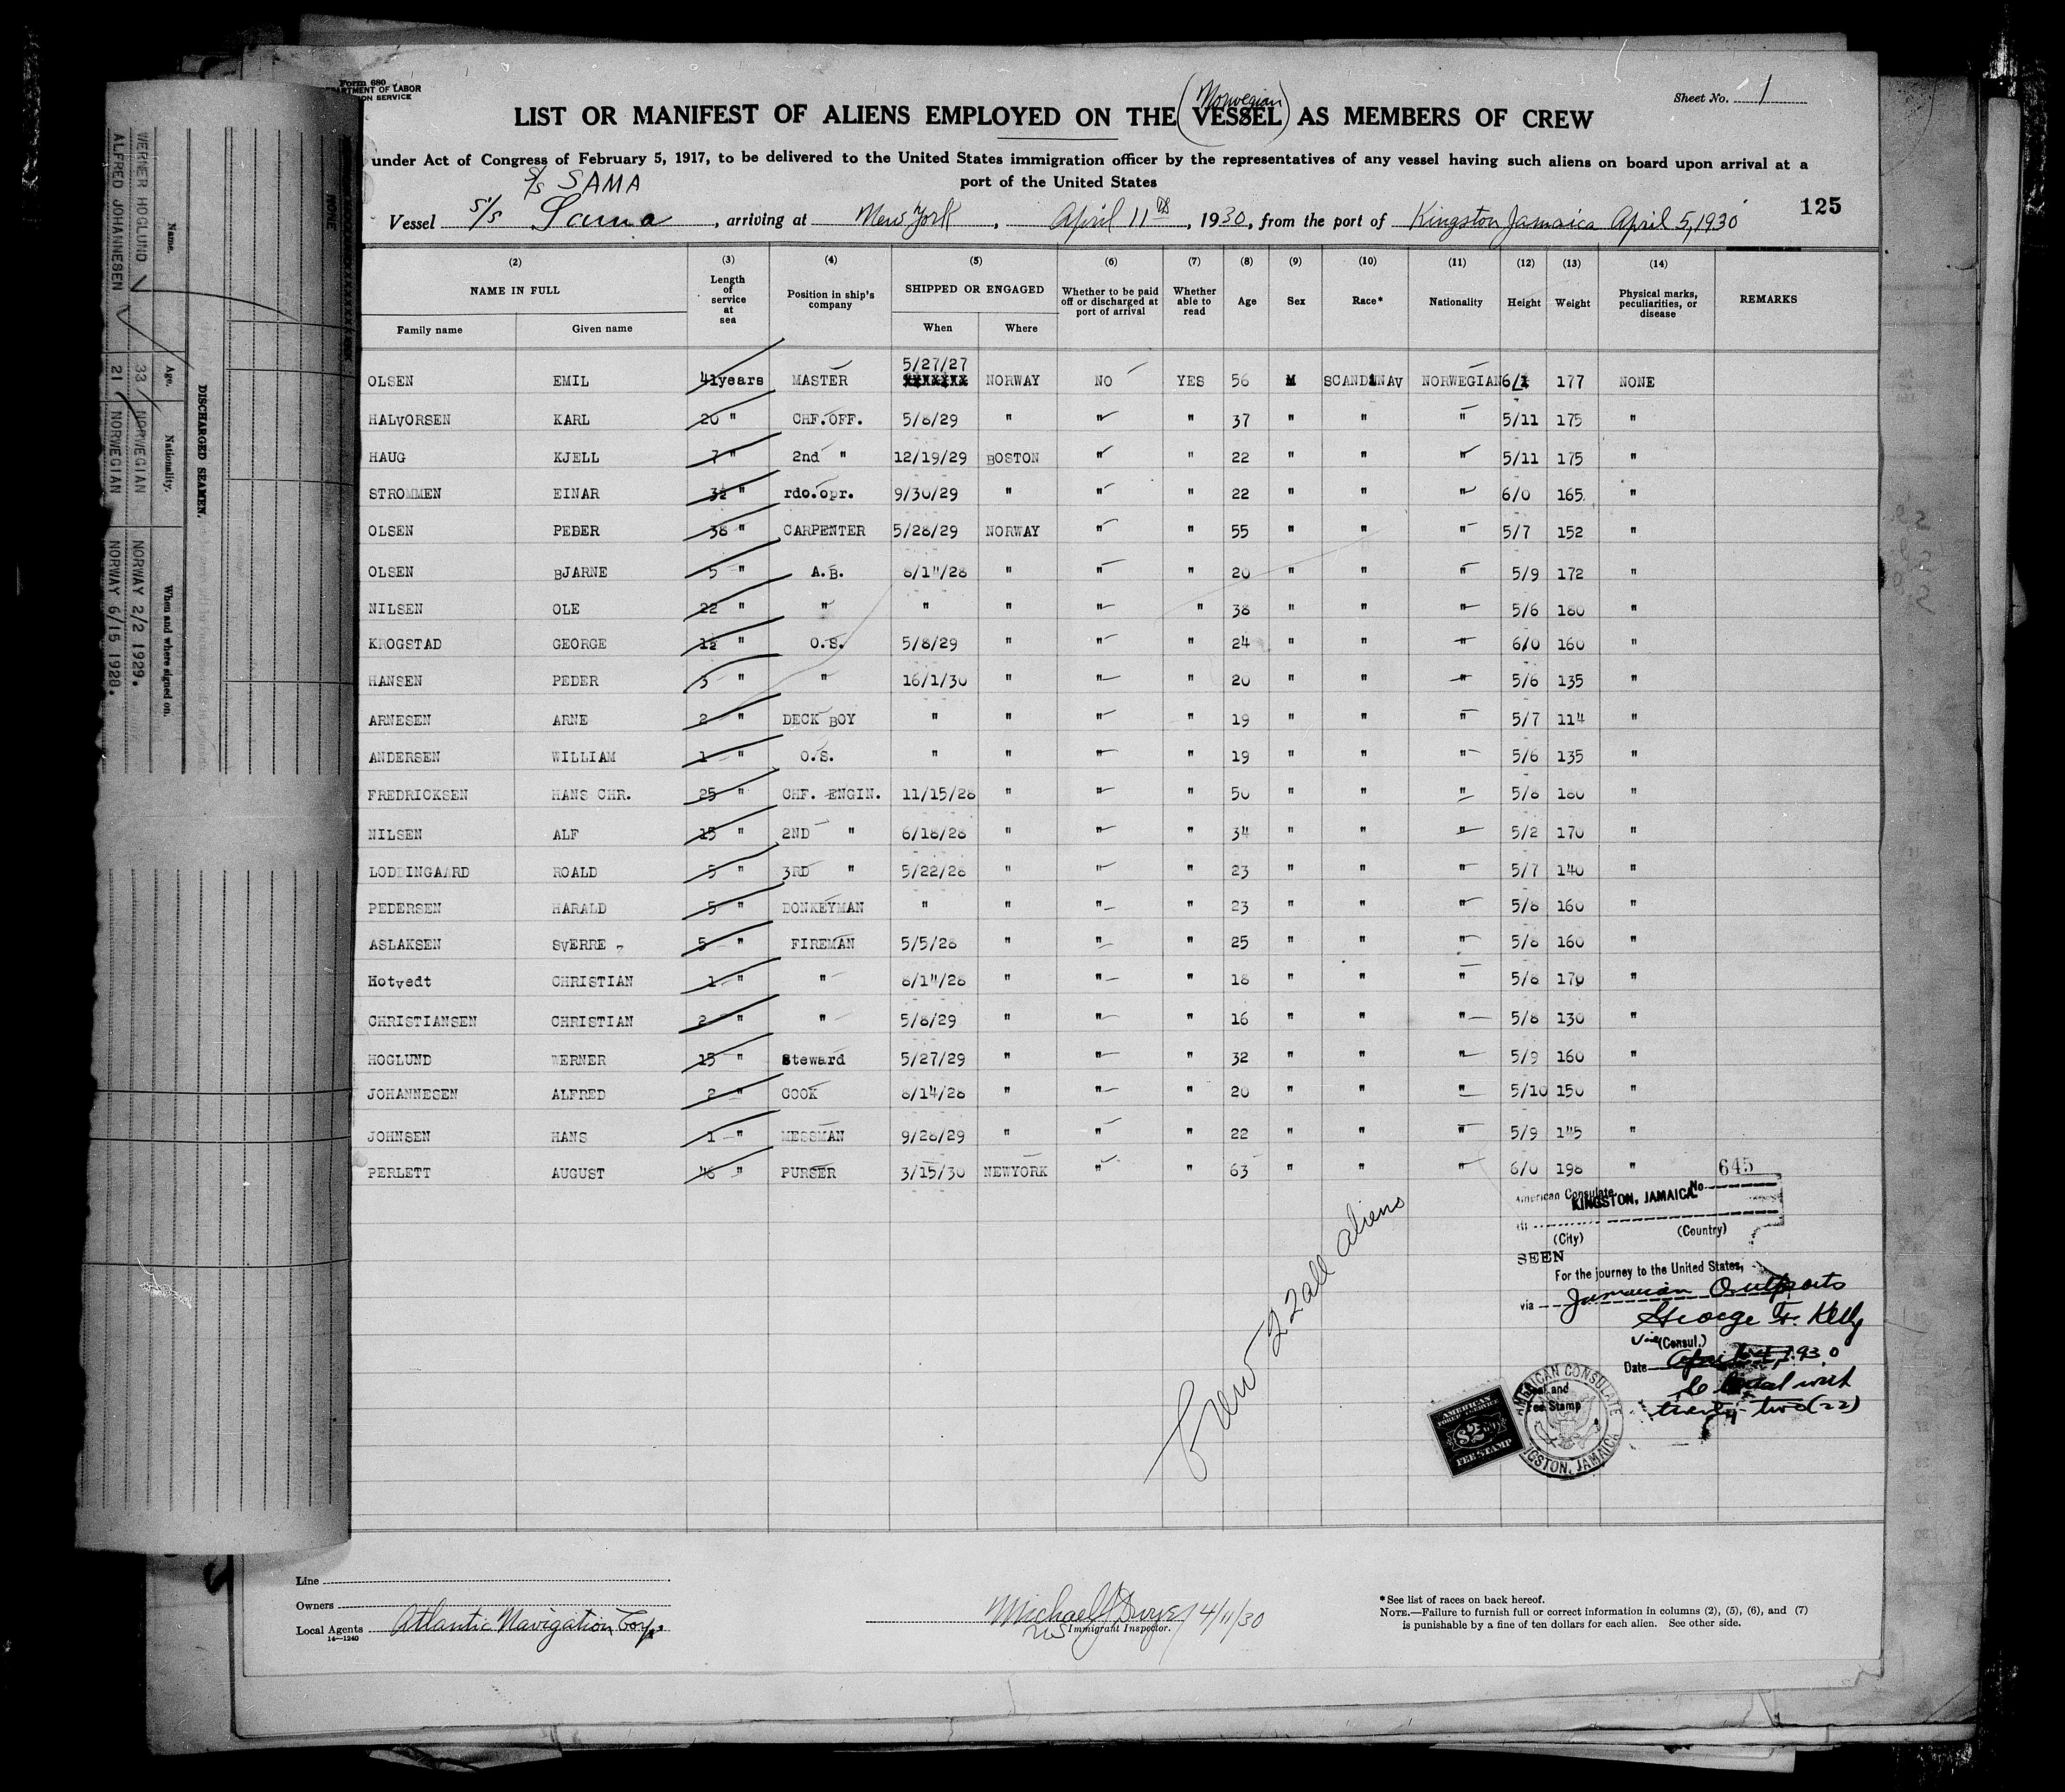 Form 680
DEPARTMENT OF LABOR
Sheet No. 1
Norwegian
LIST OR MANIFEST OF ALIENS EMPLOYED ON THE (VESSEL) AS MEMBERS OF CREW
under Act of Congress of February 5, 1917, to be delivered to the United States immigration officer by the representatives of any vessel having such aliens on board upon arrival at a
port of the United States
S/s SAMA
125
Vessel S/s Sama, arriving at New York, April 11th, 1930, from the port of Kingston Jamaica April 5, 1930
(2) (3) (4) (5) (6) (7) (8) (9) (10) (11) (12) (13) (14)
NAME IN FULL Length of service at sea Position in ship's company SHIPPED OR ENGAGED Whether to be paid off or discharged at port of arrival Whether able to read Age Sex Race* Nationality Height Weight Physical marks, peculiarities, or disease REMARKS
Family name Given name When Where
5/27/27
OLSEN EMIL 41years MASTER NORWAY NO YES 56 M SCANDINAV NORWEGIAN 6/1 177 NONE
HALVORSEN KARL 20 " CHF.OFF. 5/8/29 " " " 37 " " " 5/11 175 "
HAUG KJELL 7 " 2nd " 12/19/29 BOSTON " " 22 " " " 5/11 175 "
STROMMEN EINAR 3½ " rdo.opr. 9/30/29 " " " 22 " " " 6/0 165. "
OLSEN PEDER 38 " CARPENTER 5/28/29 NORWAY " " 55 " " " 5/7 152 "
OLSEN BJARNE 5 " A.B. 8/14/28 " " " 20 " " " 5/9 172 "
NILSEN OLE 22 " " " " " " 38 " " " 5/6 180 "
KROGSTAD GEORGE 12 " O.S. 5/8/29 " " " 24 " " " 6/0 160 "
HANSEN PEDER 3 " " 16/1/30 " " " 20 " " " 5/6 135 "
ARNESEN ARNE 2 " DECK BOY " " " " 19 " " " 5/7 114 "
ANDERSEN WILLIAM 1 " O.S. " " " " 19 " " " 5/6 135 "
FREDRICKSEN HANS CHR. 25 " CHF. ENGIN. 11/15/28 " " " 50 " " " 5/8 180 "
NILSEN ALF 15 " 2ND " 6/18/28 " " " 34 " " " 5/2 170 "
LODDINGAARD ROALD 5 " 3RD " 5/22/28 " " " 23 " " " 5/7 140 "
PEDERSEN HARALD 5 " DONKEYMAN " " " " 23 " " " 5/8 160 "
ASLAKSEN SVERRE 5 " FIREMAN 5/5/28 " " " 25 " " " 5/8 160 "
Hotvedt CHRISTIAN 1 " " 8/14/28 " " " 18 " " " 5/8 170 "
CHRISTIANSEN CHRISTIAN 2 " " 5/8/29 " " " 16 " " " 5/8 130 "
HOGLUND WERNER 15 " Steward 5/27/29 " " " 32 " " " 5/9 160 "
JOHANNESEN ALFRED 2 " COOK 8/14/28 " " " 20 " " " 5/10 150 "
JOHNSEN HANS 1 " MESSMAN 9/28/29 " " " 22 " " " 5/9 145 "
PERLETT AUGUST 46 " PURSER 3/15/30 NEWYORK " " 63 " " " 6/0 198 "
645
American Consulate No
KINGSTON, JAMAICA
(City) (Country)
SEEN
For the journey to the United States,
via Jamaican Outports
George F. Kelly
Vice (Consul.)
Date April 4, 1930
twenty two (22)
Seal and
Fee Stamp
AMERICAN CONSULATE
KINGSTON, JAMAICA
AMERICAN
FOREIGN SERVICE
$2
FEE STAMP
Crew 22 all aliens
Line
Owners
Local Agents Atlantic Navigation Corp.
14—1240
Michael J Dwyer 4/11/30
Immigrant Inspector.
*See list of races on back hereof.
NOTE.—Failure to furnish full or correct information in columns (2), (5), (6), and (7)
is punishable by a fine of ten dollars for each alien. See other side.
DISCHARGED SEAMEN.
Name. Age. Nationality. When and where signed on.
WERNER HOGLUND 33 NORWEGIAN NORWAY 2/2 1929.
ALFRED JOHANNESEN 21 NORWEGIAN NORWAY 6/15 1928.
NONE